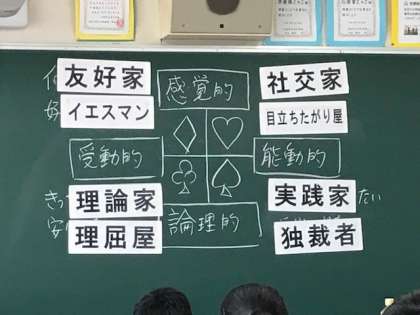 友好家
感覚的
社交家
イエスマン
目立ちたがり屋
受動的
能動的
理論家
実践家
たい
理屈屋
論理的
独裁者